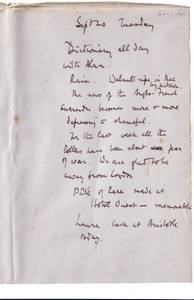 Sept 20 Tuesday
Dictionary all day
with Alan.
Rain. Walnuts ripe, in Aec
The news of the Anglo-French
surrender becomes more & more
depressing & shameful.
For the last week all the
letters have been about war fear
of war. We are glad to be
away from London
made at
Hotel Ouest – memorable
Laura back at Aristotle
today.